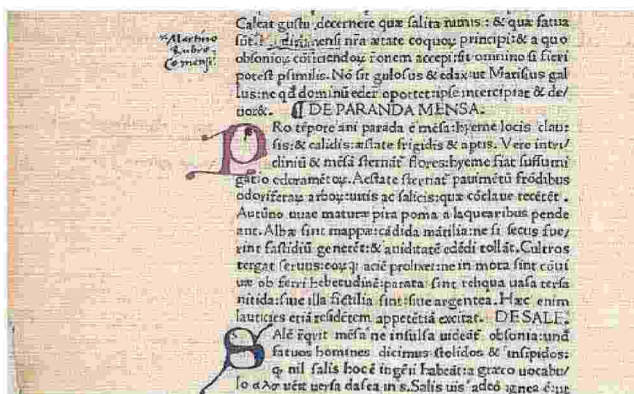 Martino
Rubro
Comensi
Caleat gustu decernere quæ salita nimis: & quæ fatua
sint. nr̄a ætate coquoꝝ principi: & a quo
obsonioꝝ cōficiendoꝝ rōnem accepi: sit omnino si fieri
potest psimilis. Nō sit gulosus & edax: ut Marisius gal
lus: ne qd dominū eder oportet: ipse intercipiat & de/
uoret. ¶ DE PARANDA MENSA.
PRo tēpore ani parada ē mēsa: hyeme locis clau
sis: & calidis: æstate frigidis & aptis. Vere intri/
cliniū & mēsā sternāt flores: hyeme fiat suffumi
gatio odoramētoꝝ. Aestate sternat pauimētū frōdibus
odoriferaꝝ arboꝝ: uitis ac salicis: quæ cōclaue
Autūno uuae maturæ pira poma a laquearibus pende
ant. Albæ sint mappæ: cādida mātilia: ne si secus fue/
rint fastidiū generēt: & auiditatē edēdi tollāt. Cultros
tergat seruus: eoꝝqꝫ aciē ne in mora sint cōui
uæ ob ferri hebetudinē: parata sint reliqua uasa tersa
nitida: siue illa fictilia sint: siue argentea. Hæc enim
lauticies etiā residētem appetētiā excitat. DE SALE.
SAlē rēqvit mēsa ne insulsa uideāt obsonia: unā
fatuos homines dicimus stolidos & insipidos:
q nil salis hoc ē ingēii habeāt: a græco uocabu/
lo αλσ uēit uersa dasea in s. Salis uis adeo ignea ē: ut